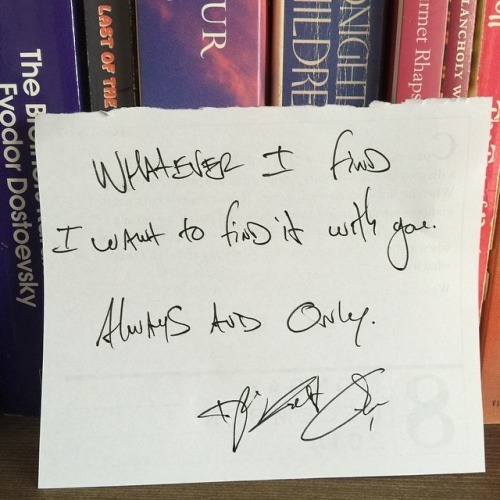 The Br
Fyodor Dostoevsky
LAST OF THE
OUR
ONIGH
HILDRE
rmet Rhaps
LANCHOLY W
WHATEVER I FIND
I WANT to FIND it with you.
ALWAYS AND ONLY.
8